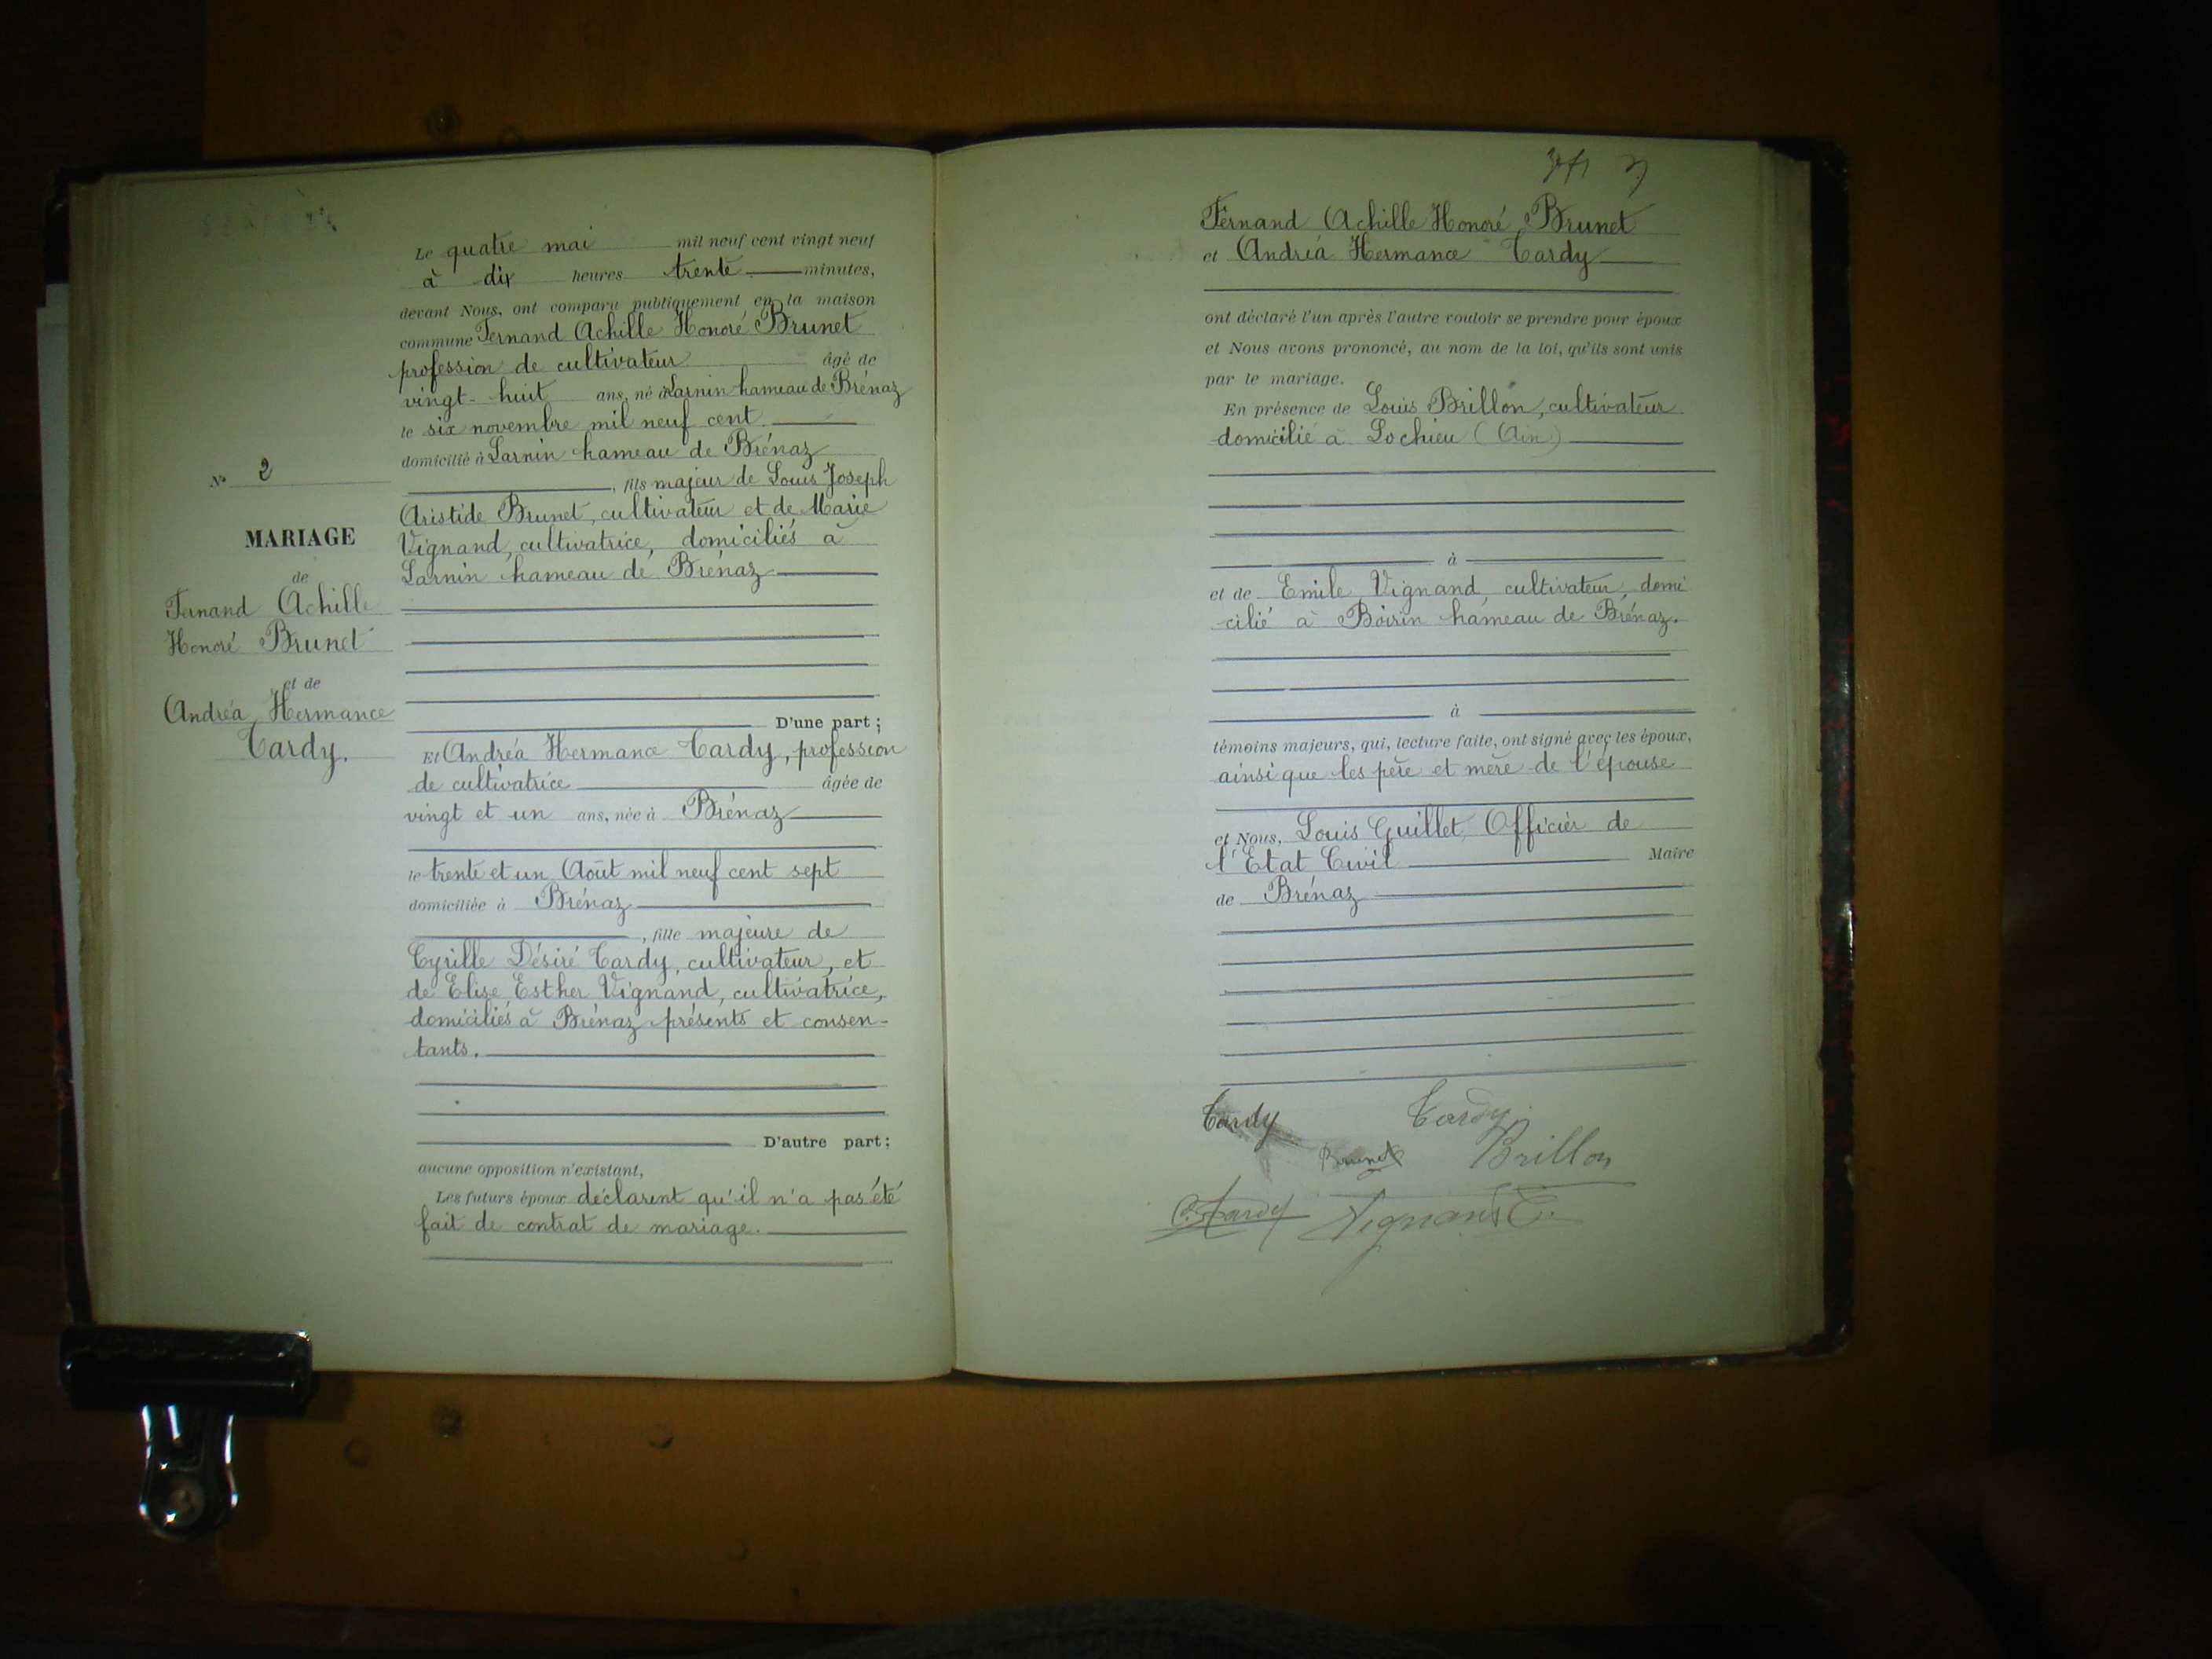 N° 2
MARIAGE
de
Fernand Achille
Honoré Brunet
et de
Andréa Hermance
Tardy.
Le quatre mai mil neuf cent vingt neuf
à dix heures trente minutes,
devant Nous, ont comparu publiquement en la maison
commune Fernand Achille Honoré Brunet
profession de cultivateur âgé de
vingt-huit ans, né à Larnin hameau de Brénaz
le six novembre mil neuf cent
domicilié à Larnin hameau de Brénaz
, fils majeur de Louis Joseph
Aristide Brunet, cultivateur et de Marie
Vignand, cultivatrice, domiciliés à
Larnin hameau de Brénaz
D'une part;
Et Andréa Hermance Tardy, profession
de cultivatrice âgée de
vingt et un ans, née à Brénaz
le trente et un Août mil neuf cent sept
domiciliée à Brénaz
, fille majeure de
Cyrille Désiré Tardy, cultivateur, et
de Elise Esther Vignand, cultivatrice,
domiciliés à Brénaz présents et consen-
tants.
D'autre part;
aucune opposition n'existant,
Les futurs époux déclarent qu'il n'a pas été
fait de contrat de mariage.
Fernand Achille Honoré Brunet
et Andréa Hermance Tardy
ont déclaré l'un après l'autre vouloir se prendre pour époux
et Nous avons prononcé, au nom de la loi, qu'ils sont unis
par le mariage.
En présence de Louis Brillon, cultivateur
domicilié à Lochieu (Ain)
à
et de Emile Vignand, cultivateur, domi
cilié à Boirin hameau de Brénaz.
à
témoins majeurs, qui, lecture faite, ont signé avec les époux,
ainsi que les père et mère de l'épouse
et Nous, Louis Guillet, Officier de
l'Etat Civil Maire
de Brénaz
Tardy Tardy
Brunet Brillon
C. Tardy Vignand E.